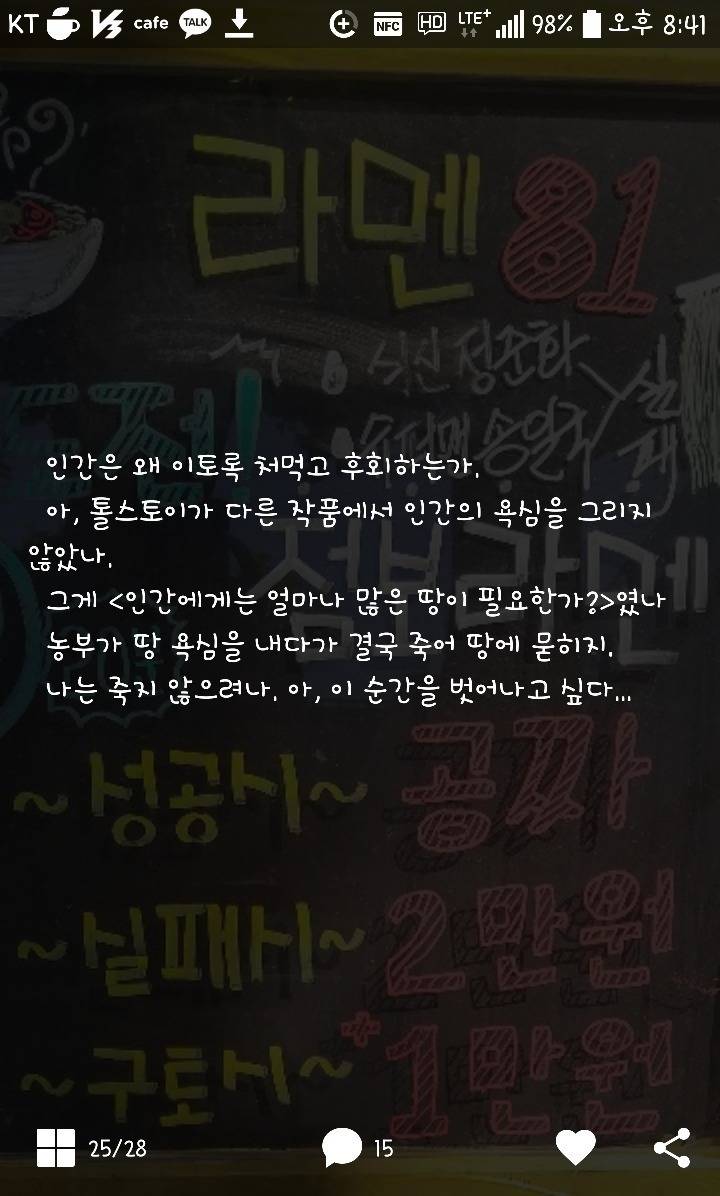 KT cafe TALK NFC HD LTE+ 98% 오후 8:41
라멘 81
식신 정준하
송일국
실패
도전!
인간은 왜 이토록 처먹고 후회하는가.
아, 톨스토이가 다른 작품에서 인간의 욕심을 그리지
않았나.
점보라멘
그게 <인간에게는 얼마나 많은 땅이 필요한가?>였나
농부가 땅 욕심을 내다가 결국 죽어 땅에 묻히지.
나는 죽지 않으려나. 아, 이 순간을 벗어나고 싶다...
~성공시~ 공짜
~실패시~ 2만원
~구토시~ +1만원
25/28 15